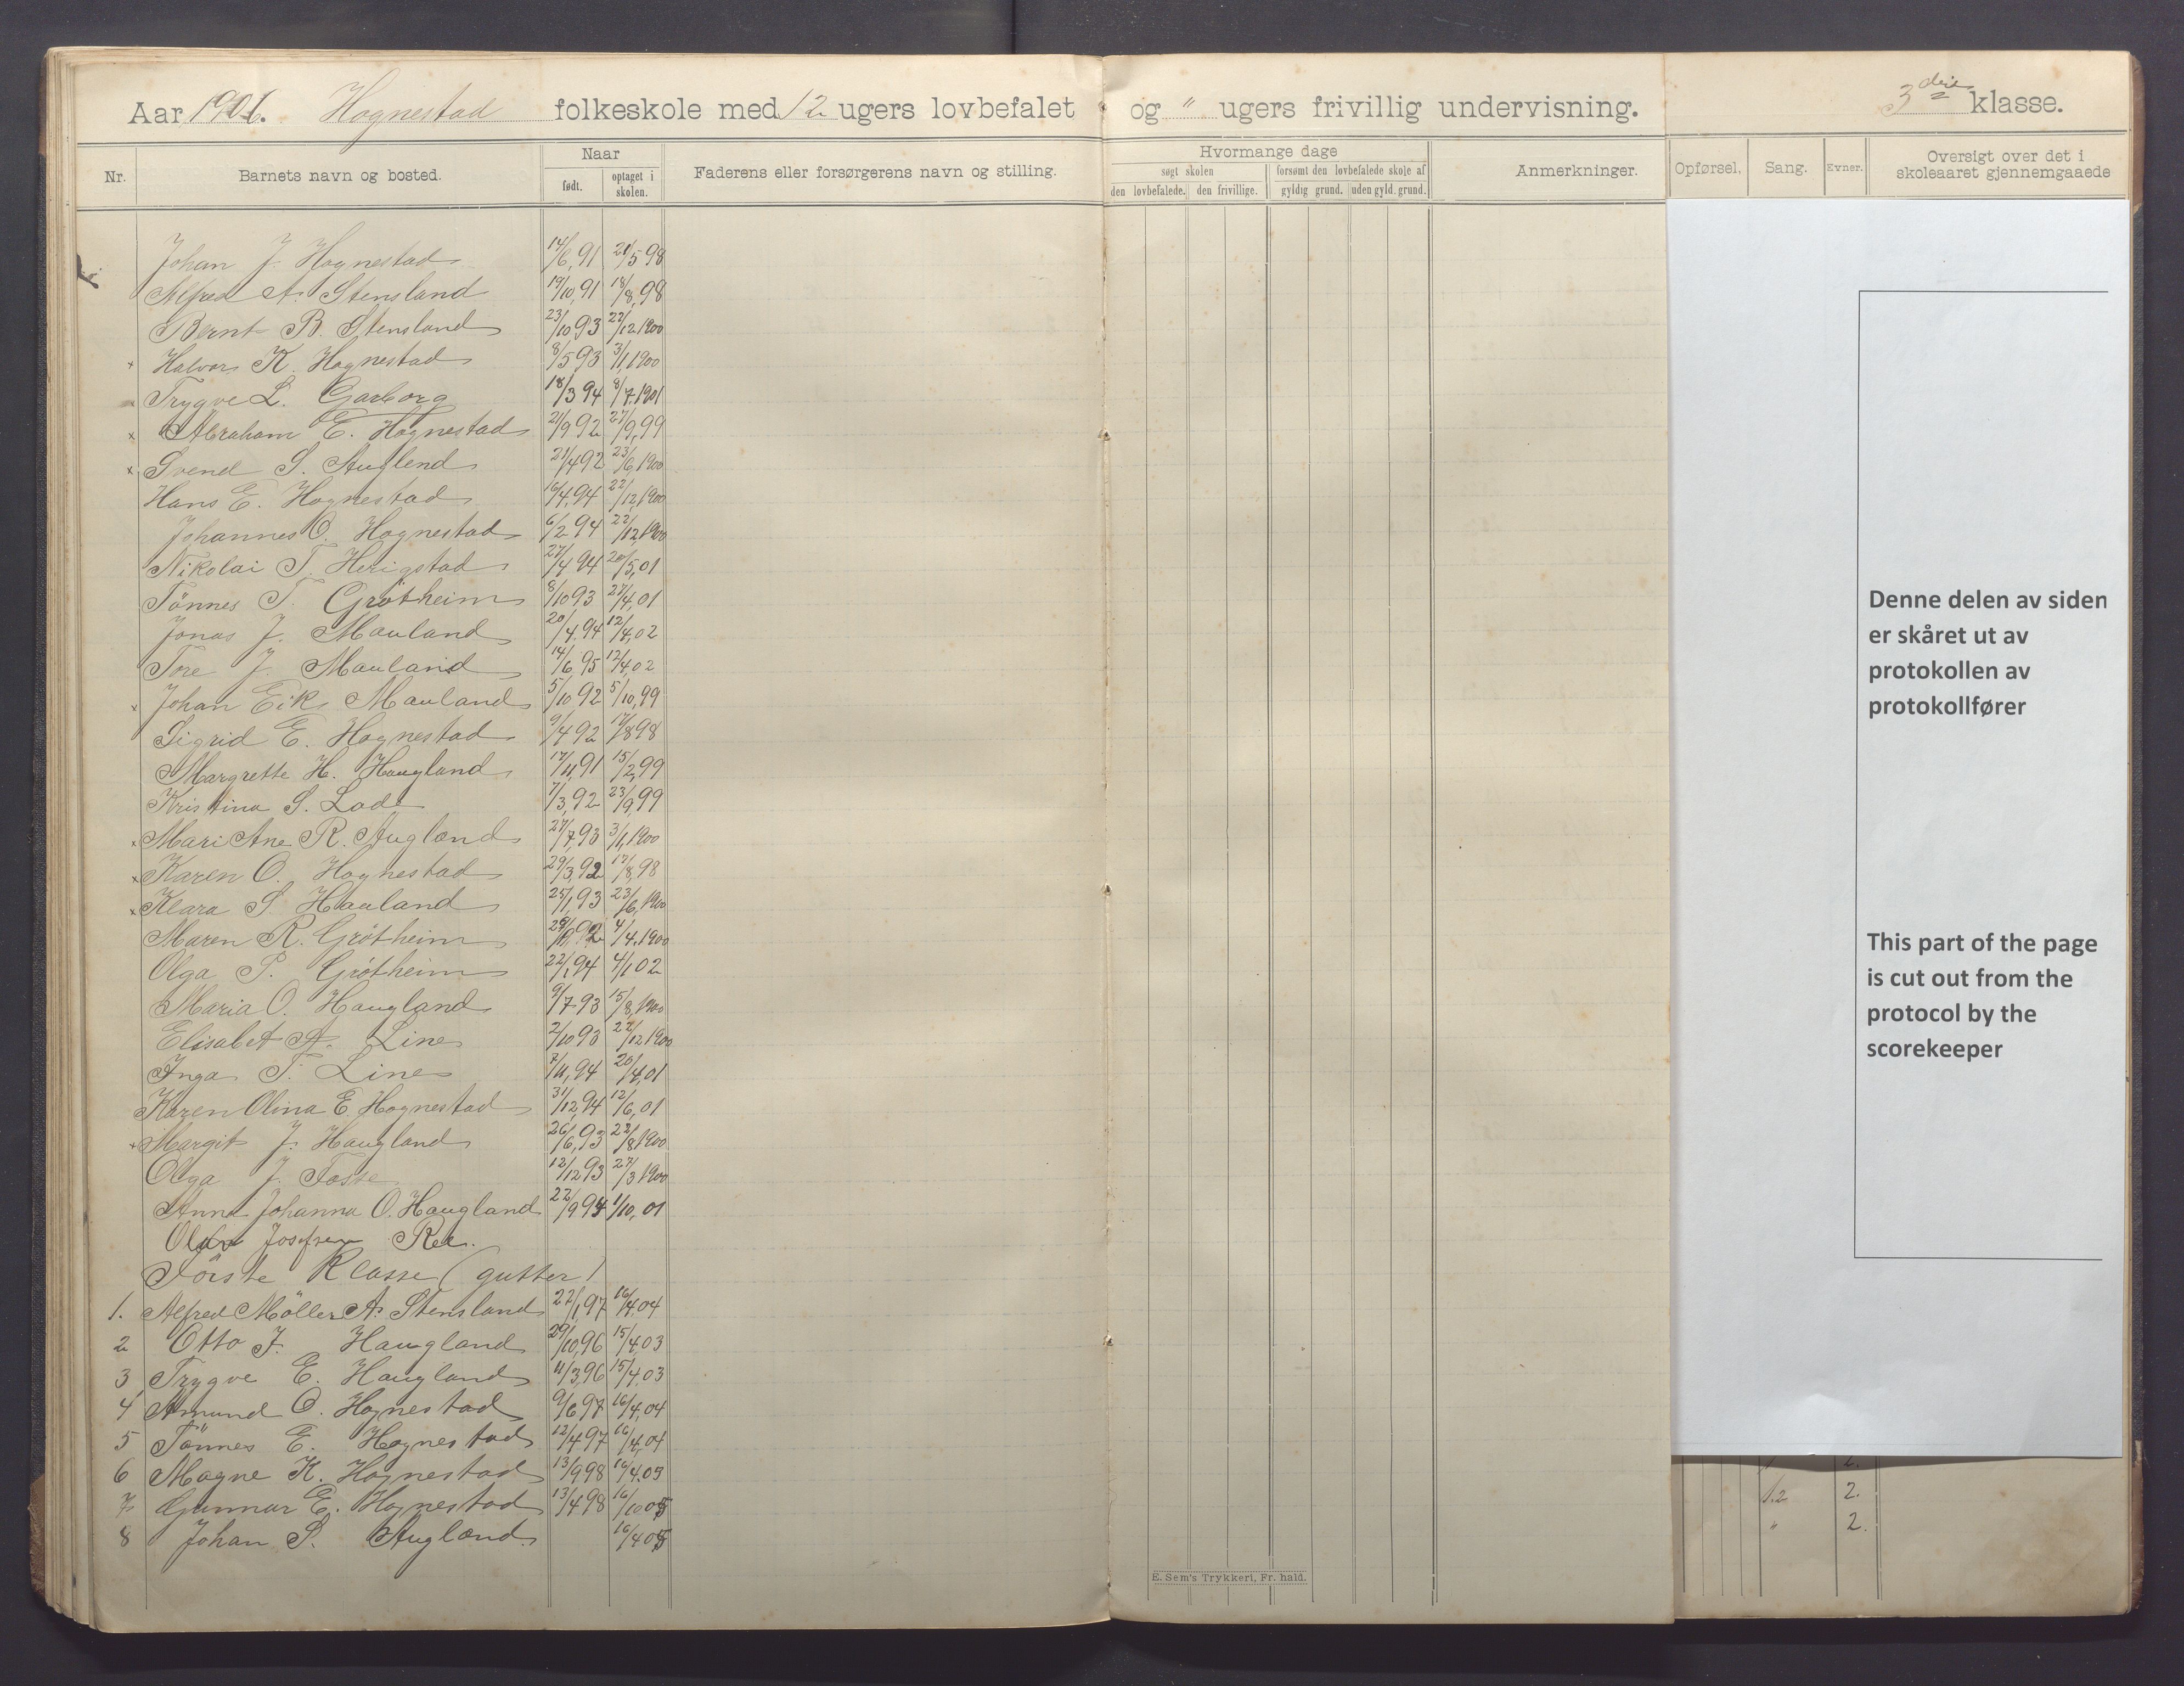 Aar 1906. Hognestad folkeskole med 12 ugers lovbefalet og " ugers frivillig undervisning. 3die klasse.
Nr. Barnets navn og bosted. Naar født. optaget i skolen. Faderens eller forsørgerens navn og stilling. Hvormange dage søgt skolen den lovbefalede. den frivillige. forsømt den lovbefalede skole af gyldig grund. uden gyld. grund. Anmerkninger. Opførsel. Sang. Evner. Oversigt over det i skoleaaret gjennemgaaede
Johan J. Hognestad 14/6,91 21/5 98
Alfred A. Stensland 19/10,91 18/8,98
Bernt B. Stensland 23/10 93 22/12 1900
x Halvor K. Hognestad 8/5 93 3/1,1900
Trygve L. Garborg 18/3 94 8/7.1901
x Abraham E. Hognestad 21/9 92 27/9,99
x Svend S. Auglend 21/4 92 23/6,1900
Hans E. Hognestad 16/4,94 22/12,1900
Johannes O. Hognestad 6/2 94 22/12,1900
Nikolai T. Herigstad 27/4 94 20/5,01
Tönnes T. Grötheim 8/10 93 27/4,01
Jonas J. Mauland 20/4,94 12/4,02
Tore J. Mauland 14/6 95 12/4,02
x Johan Eik Mauland 5/10 92 5/10,99
Sigrid E. Hognestad 9/4 92 17/8 98
Margrette H. Haugland 17/11,91 15/2,99
Kristina S. Lode 7/3,92 23/9,99
x Mari Ane R. Augland 27/7,93 3/1,1900
x Karen O. Hognestad 29/3,92 17/8,98
x Klara S. Hauland 25/1,93 23/6,1900
Maren R. Grötheim 4/4.1900
Olga P. Grötheim 22/1,94 4/1 02
Maria O. Haugland 9/7 93 15/8,1900
Elisabet A. Line 2/10 93 22/12 1900
Inga T. Line 7/11,94 20/4,01
Karen Olina E. Hognestad 31/12,94 12/6,01
x Margit J. Haugland 26/6,93 22/8 1900
Olga J. Fosse 12/12 93 27/3 1900
Anna Johanna O. Haugland 22/9 94 1/10,01
Josefsen Ree.
Förste Klasse (gutter)
1. Alfred Möller A. Stensland 22/1,97 16/4 04
2 Otto J. Haugland 29/10,96 15/4 03
3 Trygve E. Haugland 11/3,96 15/4,03
4 Amund O. Hognestad 9/6 97 16/4,04
5 Tönnes E. Hognestad 12/4 97 16/4,04
6 Magne K. Hognestad 13/9 98 16/4.05
7 Gunnar E. Hognestad 13/4 98 16/10 05
8 Johan S. Augland. 16/4 05
E. Sem's Trykkeri, Fr. hald.
Denne delen av siden
er skåret ut av
protokollen av
protokollfører
This part of the page
is cut out from the
protocol by the
scorekeeper
2.
1.2 2.
" 2.